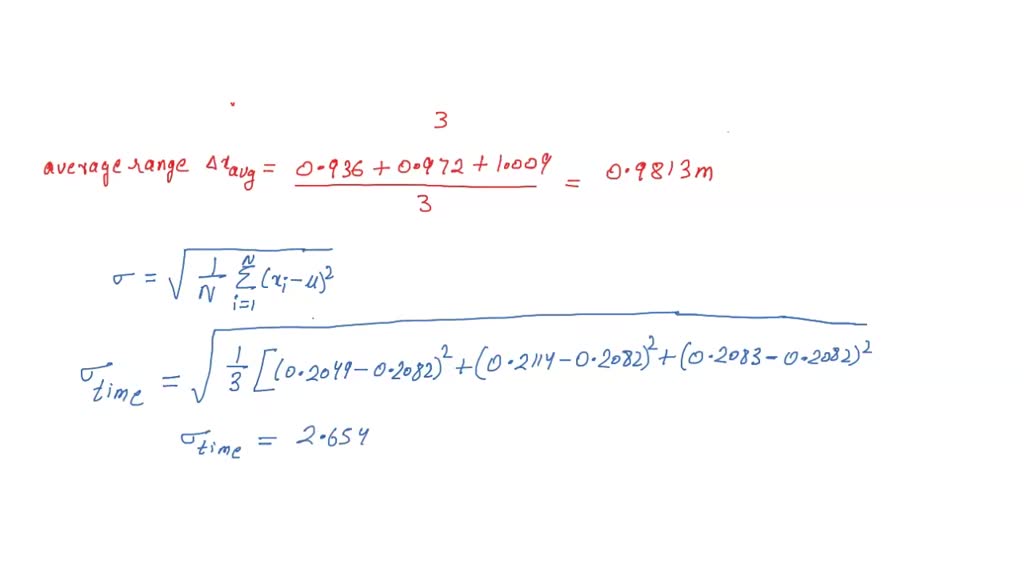 3
average range Δx_avg = (0.936 + 0.972 + 1.009)/3 = 0.9813m
σ = √(1/N Σ_{i=1}^{N} (x_i - u)²)
σ_time = √(1/3 [(0.2049 - 0.2082)² + (0.2114 - 0.2082)² + (0.2083 - 0.2082)²
σ_time = 2.654